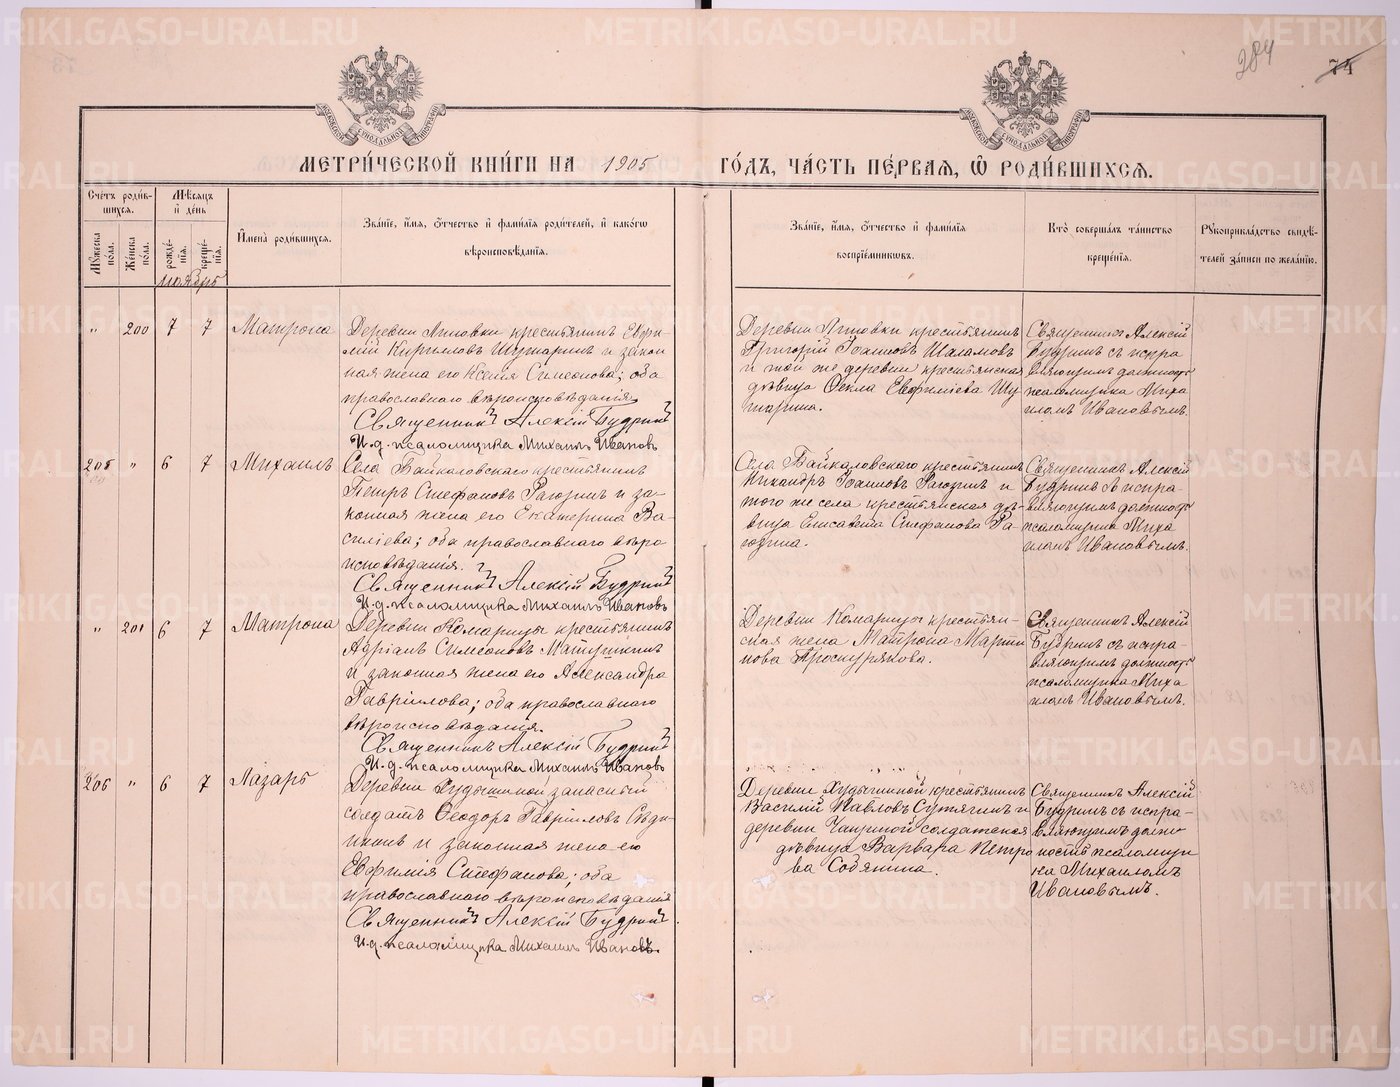 284
74
МОСКОВСКОЙ СИНОДАЛЬНОЙ ТИПОГРАФІИ
МОСКОВСКОЙ СИНОДАЛЬНОЙ ТИПОГРАФІИ
МЕТРИ́ЧЕСКОЙ КНИ́ГИ НА 1905 ГО́ДЪ, ЧА́СТЬ ПЕ́РВАЯ, Ѡ РОДИ́ВШИХСЯ.
Сче́тъ роди́вшихся.
Мꙋ́жеска по́ла.
Же́нска по́ла.
Мѣ́сяцъ и де́нь
рожде́нїя.
креще́нїя.
Имена̀ роди́вшихся.
Зва́нїе, и́мя, ѻ́тчество и фами́лїя роди́телей, и како́гѡ
вѣроисповѣ́данїя.
Зва́нїе, и́мя, ѻ́тчество и фами́лїя
воспрїе́мникѡвъ.
Кто̀ соверша́лъ та́инство
креще́нїя.
Рꙋкоприкла́дство свидѣ́телей за́писи по жела́нїю.
ноябрь
" 200 7 7 Матрона
Деревни Липовки крестьянинъ Евѳи-
мій Кирилловъ Шутаринъ и закон
ная жена его Ксенія Симеонова; оба
православнаго вѣроисповѣданія.
Священникъ Алексій Будринъ
И.д. псаломщика Михаилъ Ивановъ
Деревни Липовки крестьянинъ
Григорій Іоанновъ Шаламовъ
и той же деревни крестьянская
дѣвица Ѳекла Евфиміева Шу
тарина.
Священникъ Алексій
Будринъ съ испра
вляющимъ должность
псаломщика Миха
иломъ Ивановымъ.
205 " 6 7 Михаилъ
Села Байкаловскаго крестьянинъ
Петръ Стефановъ Рагозинъ и за-
конная жена его Екатерина Ва-
силіева; оба православнаго вѣро
исповѣданія.
Священникъ Алексій Будринъ
И.д. псаломщика Михаилъ Ивановъ
Села Байкаловскаго крестьянинъ
Никандръ Іоанновъ Рагозинъ и
того же села крестьянская дѣ-
вица Елисавета Стефанова Ра-
гозина.
Священникъ Алексій
Будринъ съ испра-
вляющимъ должность
псаломщика Миха
иломъ Ивановымъ.
" 201 6 7 Матрона
Деревни Комарицы крестьянинъ
Адріанъ Симеоновъ Матушкинъ
и законная жена его Александра
Гавріилова; оба православнаго
вѣроисповѣданія.
Священникъ Алексій Будринъ
И.д. псаломщика Михаилъ Ивановъ
Деревни Комарицы крестьян-
ская жена Матрона Марти
нова Проскурякова.
Священникъ Алексій
Будринъ съ испра-
вляющимъ должность
псаломщика Миха
иломъ Ивановымъ.
206 " 6 7 Лазарь
Деревни запасный
солдатъ Ѳеодоръ Гавріиловъ
и законная жена его
Евфимія Стефанова; оба
православнаго вѣроисповѣданія
Священникъ Алексій Будринъ.
И.д. псаломщика Михаилъ Ивановъ.
Деревни крестьянинъ
Василій Павловъ Сутягинъ и
деревни солдатская
дѣвица Варвара Петро
ва
Священникъ Алексій
Будринъ съ испра-
вляющимъ долж
ность псаломщи
ка Михаиломъ
Ивановымъ.
METRIKI.GASO-URAL.RU